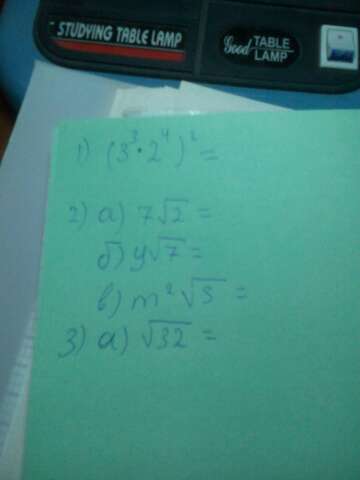 STUDYING TABLE LAMP
Good TABLE LAMP
1) (3³·2⁴)² =
2) а) 7√2 =
б) y√7 =
в) m²√3 =
3) а) √32 =